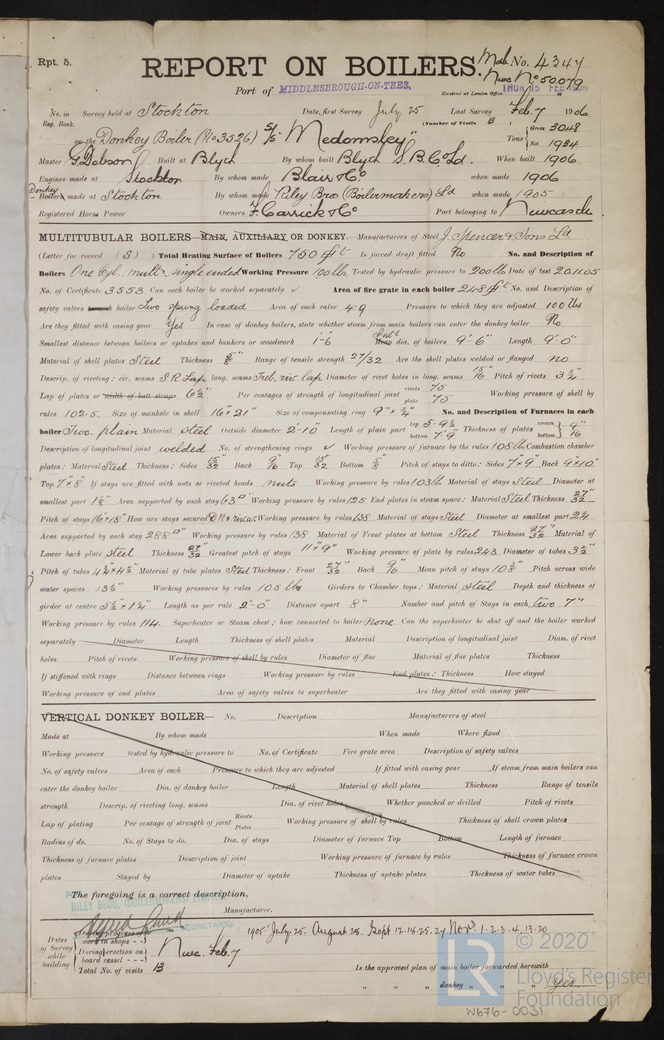 Rpt. 5.
REPORT ON BOILERS.
Mdb. No. 4347
Nwc No 50079
Port of MIDDLESBROUGH-ON-TEES,
Received at London Office THUR. 15 FEB 1906
No. in Survey held at Stockton Date, first Survey July 25 Last Survey Feb. 7 1906
Reg. Book. (Number of Visits 13)
on the Donkey Boiler (No 3526) S/S "Medomsley" Tons Gross 3048 Net 1934
Master G. Dobson Built at Blyth By whom built Blyth S. B. Co Ld. When built 1906.
Engines made at Stockton By whom made Blair & Co. when made 1906
Donkey Boiler made at Stockton By whom made Riley Bros (Boilermakers) Ld when made 1905
Registered Horse Power Owners F. Carrick & Co Port belonging to Newcastle
MULTITUBULAR BOILERS—MAIN, AUXILIARY OR DONKEY.—Manufacturers of Steel J. Spencer & Sons Ld
(Letter for record (S) ) Total Heating Surface of Boilers 750 sq ft Is forced draft fitted No No. and Description of
Boilers One Cyl. mult. single ended Working Pressure 100 lbs Tested by hydraulic pressure to 200 lbs Date of test 20.11.05
No. of Certificate 3553 Can each boiler be worked separately ✓ Area of fire grate in each boiler 24.8 sq ft No. and Description of
safety valves to each boiler Two spring loaded Area of each valve 4.9 Pressure to which they are adjusted 100 lbs
Are they fitted with easing gear Yes In case of donkey boilers, state whether steam from main boilers can enter the donkey boiler No
Smallest distance between boilers or uptakes and bunkers or woodwork 1'-6 Int. dia. of boilers 9'. 6" Length 9'. 0"
Material of shell plates Steel Thickness 5/8" Range of tensile strength 27/32 Are the shell plates welded or flanged no
Descrip. of riveting: cir. seams S R Lap long. seams Treb. riv lap Diameter of rivet holes in long. seams 15/16 Pitch of rivets 3 3/4"
Lap of plates or width of butt straps 6 1/2" Per centages of strength of longitudinal joint rivets 75 plate 75 Working pressure of shell by
rules 102.5 Size of manhole in shell 16" x 21" Size of compensating ring 9" x 3/4" No. and Description of Furnaces in each
boiler Two. plain Material steel Outside diameter 2'-10" Length of plain part top 5-9 1/2 bottom 7'-9" Thickness of plates crown bottom 9/16"
Description of longitudinal joint welded No. of strengthening rings ✓ Working pressure of furnace by the rules 105 lbs Combustion chamber
plates: Material Steel Thickness: Sides 15/32 Back 9/16 Top 15/32 Bottom 5/8 Pitch of stays to ditto: Sides 7" x 9" Back 9" x 10"
Top 7" x 8" If stays are fitted with nuts or riveted heads nuts Working pressure by rules 103 lbs Material of stays Steel Diameter at
smallest part 1 3/8" Area supported by each stay 63" Working pressure by rules 125 End plates in steam space: Material Steel Thickness 27/32"
Pitch of stays 16" x 18" How are stays secured D N & rivets Working pressure by rules 138 Material of stays Steel Diameter at smallest part 2 1/4
Area supported by each stay 288" Working pressure by rules 138 Material of Front plates at bottom Steel Thickness 27/32" Material of
Lower back plate steel Thickness 27/32 Greatest pitch of stays 11" x 9" Working pressure of plate by rules 243 Diameter of tubes 3 1/2"
Pitch of tubes 4 3/4" x 4 1/2" Material of tube plates Steel Thickness: Front 27/32" Back 9/16 Mean pitch of stays 10 1/8" Pitch across wide
water spaces 13 1/2" Working pressures by rules 105 lbs Girders to Chamber tops: Material steel Depth and thickness of
girder at centre 5 1/2" x 1 1/4" Length as per rule 2'-0" Distance apart 8" Number and pitch of Stays in each two 7"
Working pressure by rules 114. Superheater or Steam chest; how connected to boiler None Can the superheater be shut off and the boiler worked
separately Diameter Length Thickness of shell plates Material Description of longitudinal joint Diam. of rivet
holes Pitch of rivets Working pressure of shell by rules Diameter of flue Material of flue plates Thickness
If stiffened with rings Distance between rings Working pressure by rules End plates: Thickness How stayed
Working pressure of end plates Area of safety valves to superheater Are they fitted with easing gear
VERTICAL DONKEY BOILER— No. Description Manufacturers of steel
Made at By whom made When made Where fixed
Working pressure tested by hydraulic pressure to No. of Certificate Fire grate area Description of safety valves
No. of safety valves Area of each Pressure to which they are adjusted If fitted with easing gear If steam from main boilers can
enter the donkey boiler Dia. of donkey boiler Length Material of shell plates Thickness Range of tensile
strength Descrip. of riveting long. seams Dia. of rivet holes Whether punched or drilled Pitch of rivets
Lap of plating Per centage of strength of joint Rivets Plates Working pressure of shell by rules Thickness of shell crown plates
Radius of do. No. of Stays to do. Dia. of stays Diameter of furnace Top Bottom Length of furnace
Thickness of furnace plates Description of joint Working pressure of furnace by rules Thickness of furnace crown
plates Stayed by Diameter of uptake Thickness of uptake plates Thickness of water tubes
The foregoing is a correct description,
RILEY BROS. (BOILERMAKERS) LIMITED
SECRETARY.
Manufacturer.
Dates of Survey while building
During progress of work in shops - - 1905: July 25. August 28. Sept. 12. 18. 25. 27 Nov. 1. 2. 3. 4. 13. 20
During erection on board vessel - - - Nwc. Feb. 7
Total No. of visits 13
Is the approved plan of main boiler forwarded herewith
" " " donkey " " " Yes.
W676-0031
© 2020
Lloyd's Register
Foundation
LR